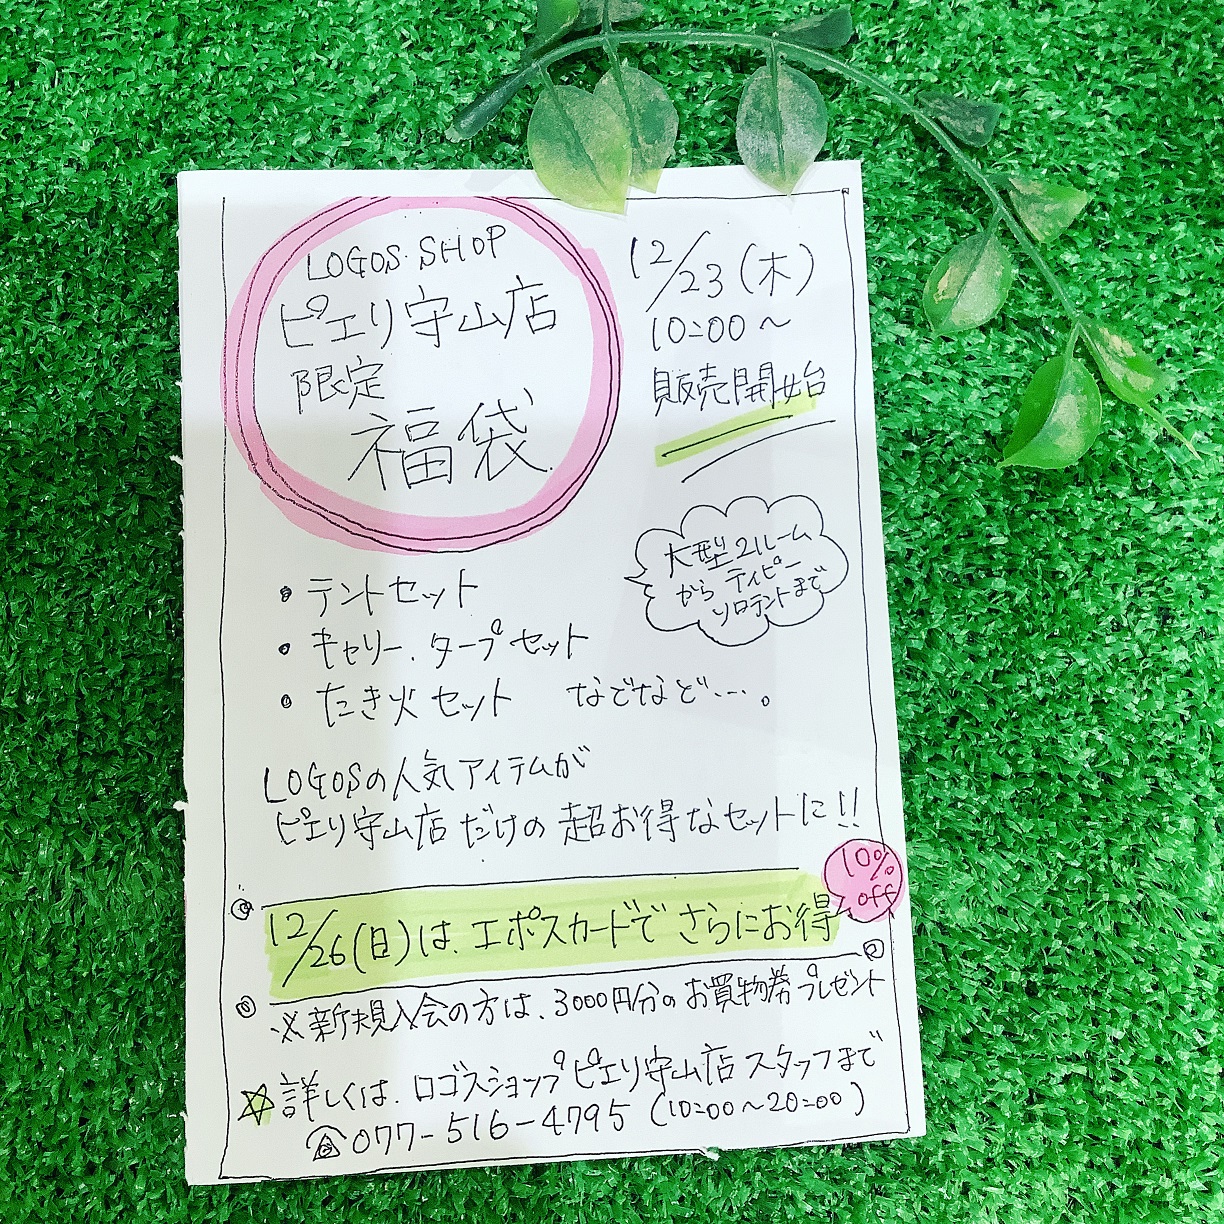 LOGOS SHOP
ピエリ守山店
限定
福袋
12/23(木)
10:00〜
販売開始
大型2ルーム
から ティピー
ソロテントまで
・テントセット
・キャリー、タープセット
・たき火セット などなど…。
LOGOSの人気アイテムが
ピエリ守山店だけの超お得なセットに!!
10%
off
12/26(日)は、エポスカードでさらにお得
※新規入会の方は、3000円分のお買物券プレゼント
☆詳しくは、ロゴスショップピエリ守山店スタッフまで
☎077-516-4795(10:00〜20:00)